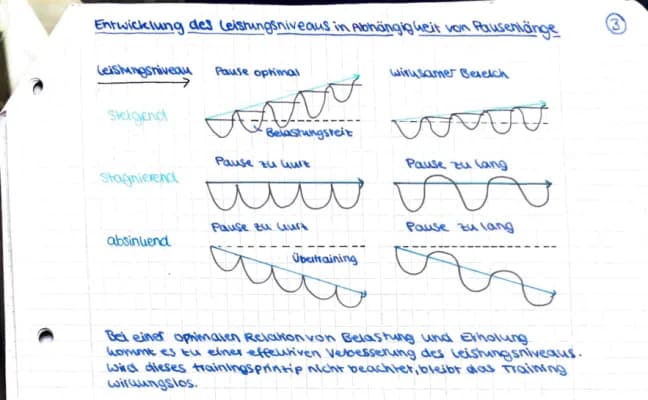 Entwicklung des Leistungsniveaus in Abhängigkeit von Pausenlänge
3
Leistungsniveau
Pause optimal
wirksamer Bereich
Steigend
Belastungsreiz
Pause zu kurz
Pause zu lang
Stagnierend
Pause zu kurz
Pause zu lang
absinkend
Übertraining
Bei einer optimalen Relation von Belastung und Erholung
kommt es zu einer effektiven Verbesserung des Leistungsniveaus.
Wird dieses Trainingsprinzip nicht beachtet, bleibt das Training
wirkungslos.